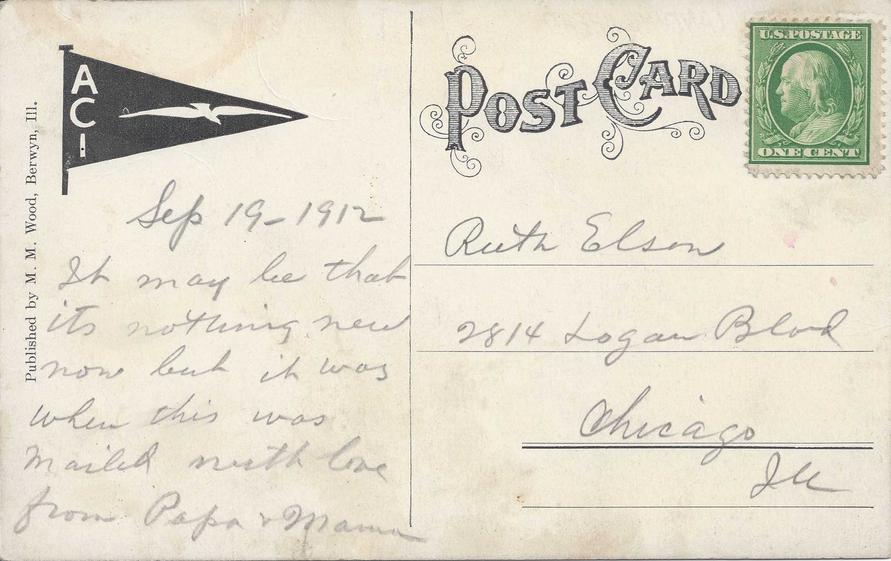 Published by M. M. Wood, Berwyn, Ill.
ACI
Sep 19-1912
It may be that
its nothing new
now but it was
when this was
mailed with love
from Papa & Mama
POST CARD
U.S. POSTAGE
ONE CENT
Ruth Elson
2814 Logan Blvd
Chicago
Ill